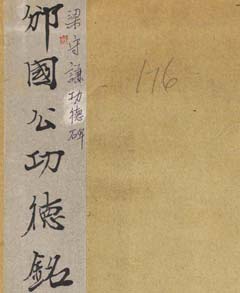 邠國公功德銘
梁守謙功德碑
1-16